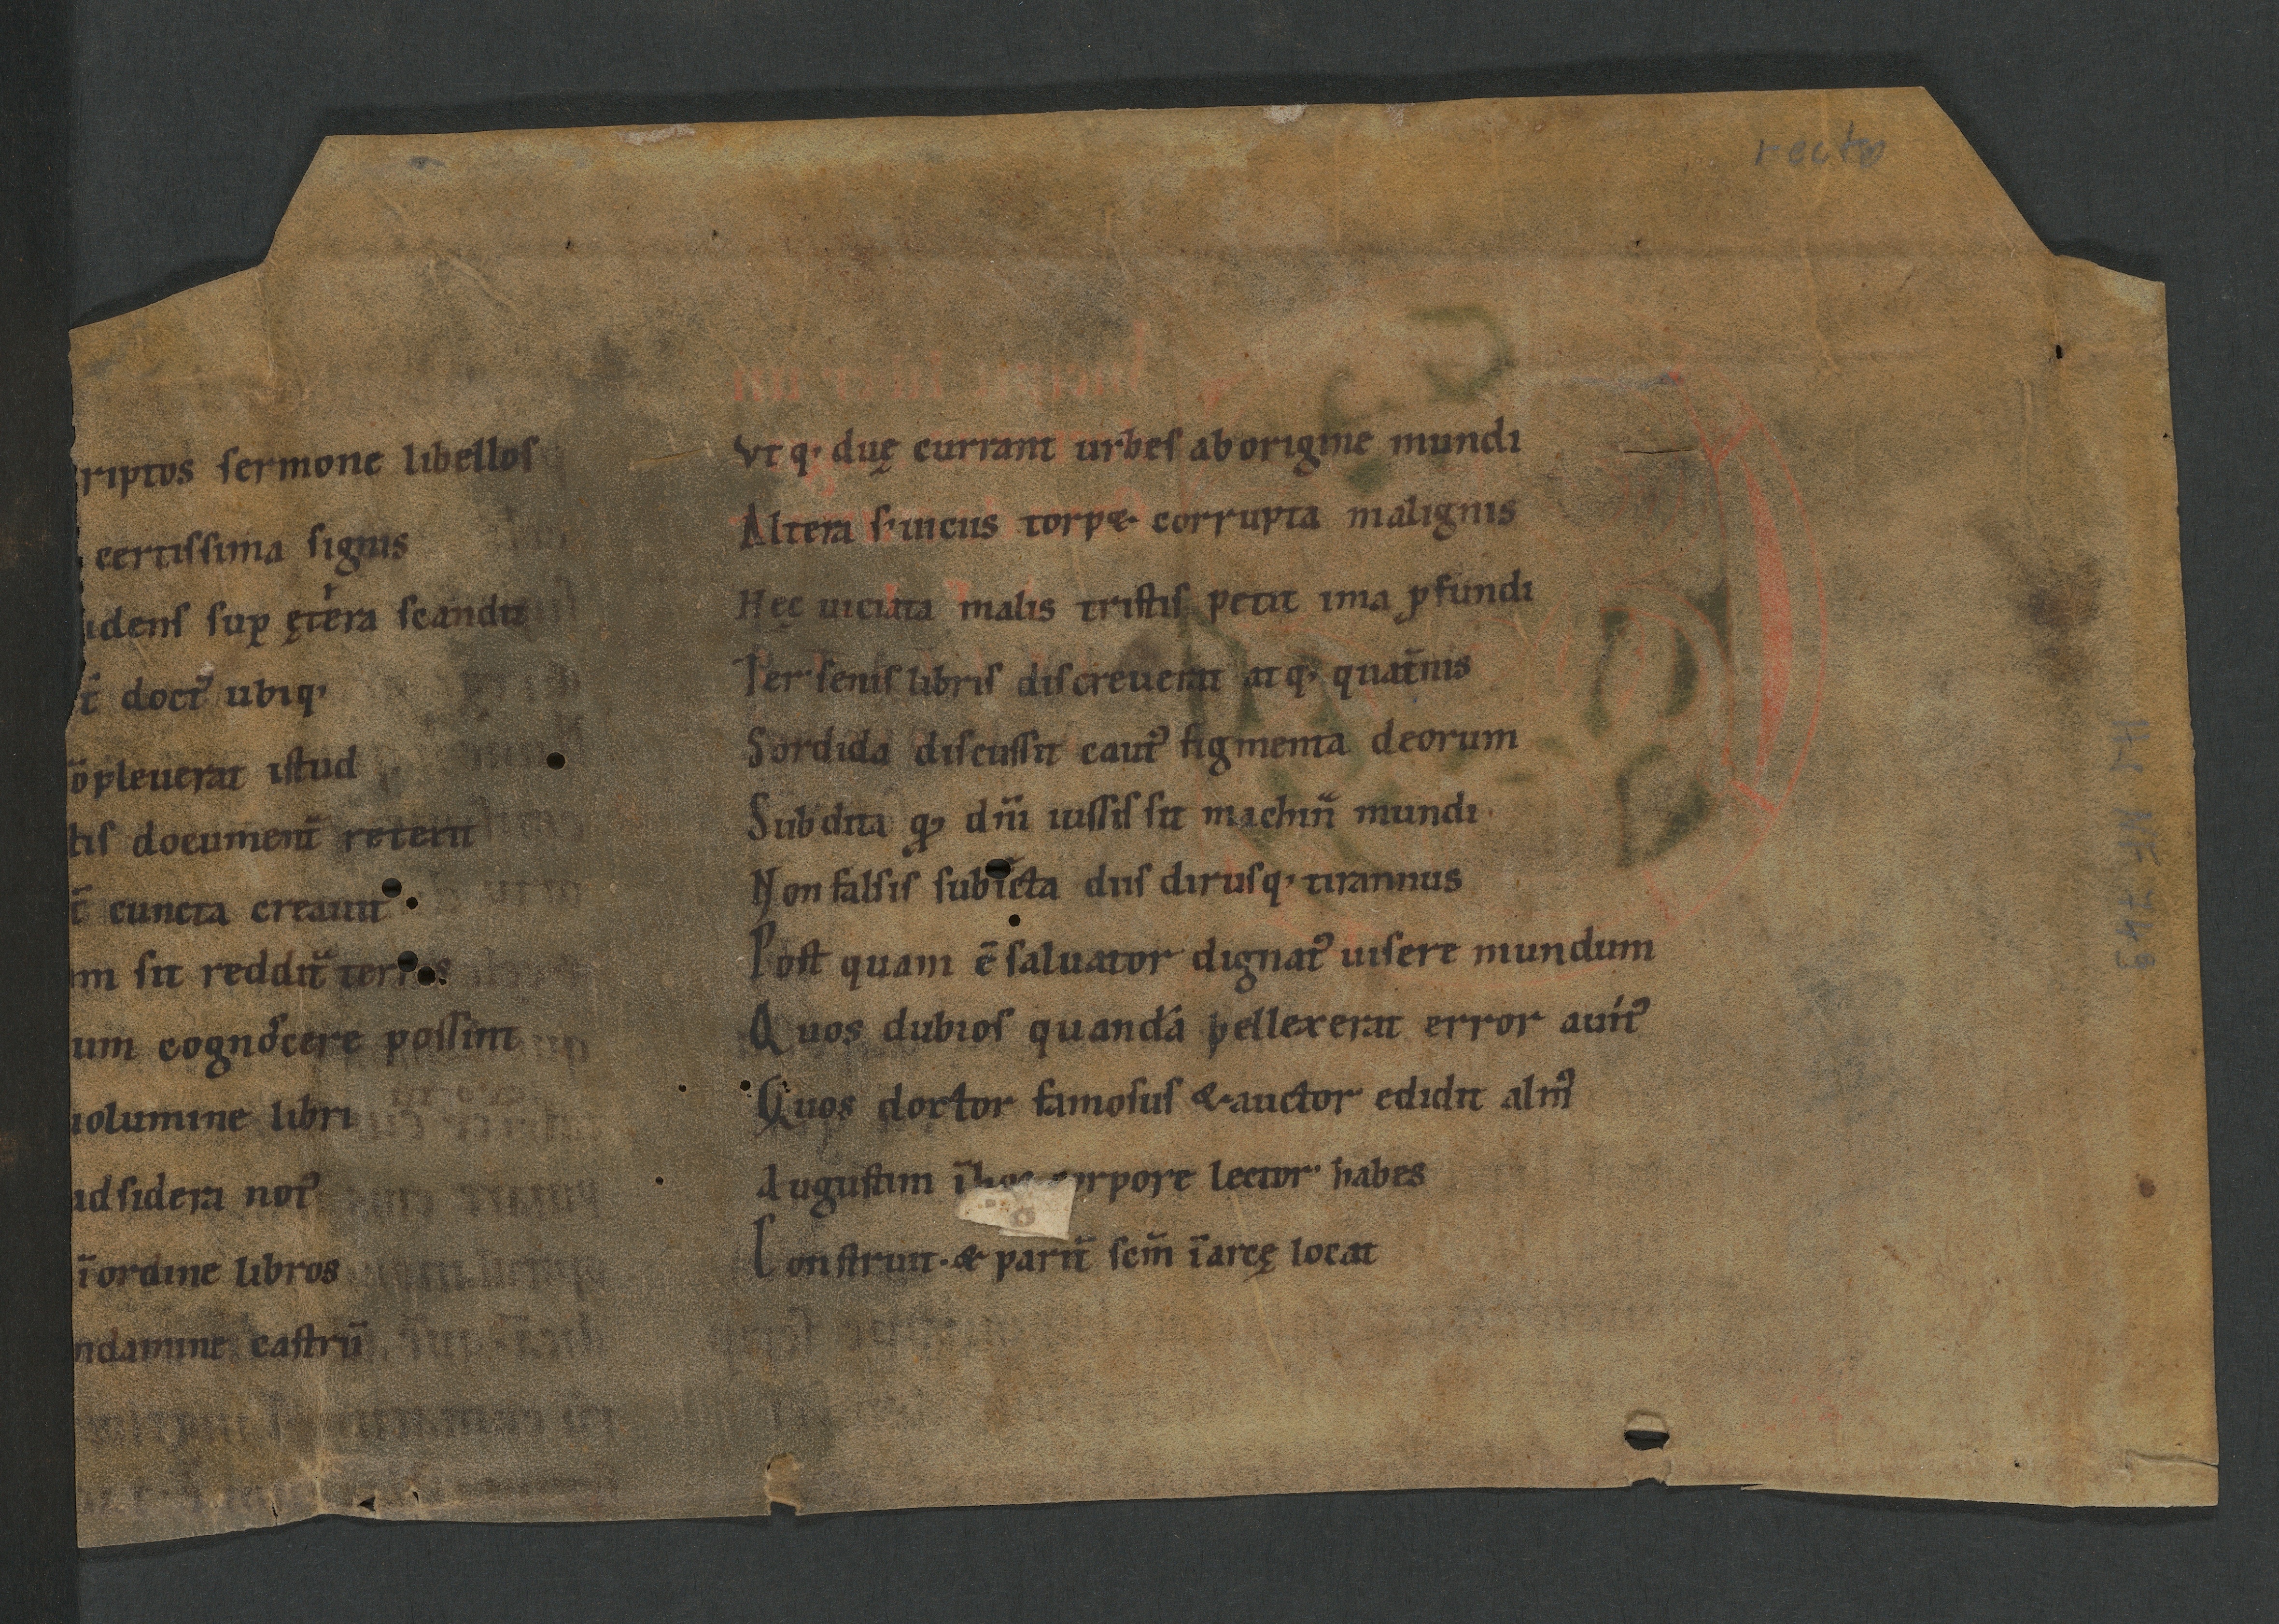 recto
riptos sermone libellos
certissima signis
idens sup ęt̄era scandit
t̄ doct᷒ ubiq·
ōpleuerat istud
tis document̄ retexit
t̄ cuncta creauit
m sit reddit̄ terras
um cognoscere possint
uolumine libri
ad sidera not᷒
ī ordine libros
ndamine castrū
Vt q· duę currant urbes ab origine mundi
Altera s· uiciis torp& corrupta malignis
Hęc uiciata malis tristis petit ima ꝓfundi
Ter senis libris discreuerat atq· quat̄nis
Sordida discussit caut᷒ figmenta deorum
Subdita ꝙ dn̄i iussis sit machin̄ mundi
Non falsis subiecta diis dirusq· tirannus
Post quam ē saluator dignat᷒ uisere mundum
Quos dubios quanda pellexerat error
Quos doctor famosus & auctor edidit alm᷒
Augustini ī hoc corpore lector habes
Construit· & parit̄ scm̄ ī arcę locat